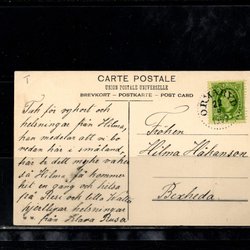 T
CARTE POSTALE
UNION POSTALE UNIVERSELLE
BREVKORT — POSTKARTE — POST CARD
Tak för vykort och
helsningar från Hilma,
han medelar att vi bo
redan här i småland,
här är dett myke vaker
så Hilma får kommer
hit en gang och helsa
på Resi och ella Wale
Hjertliga helsningar
från Klara Rusa
Fröken
Hilma Håkanson
Boxheda